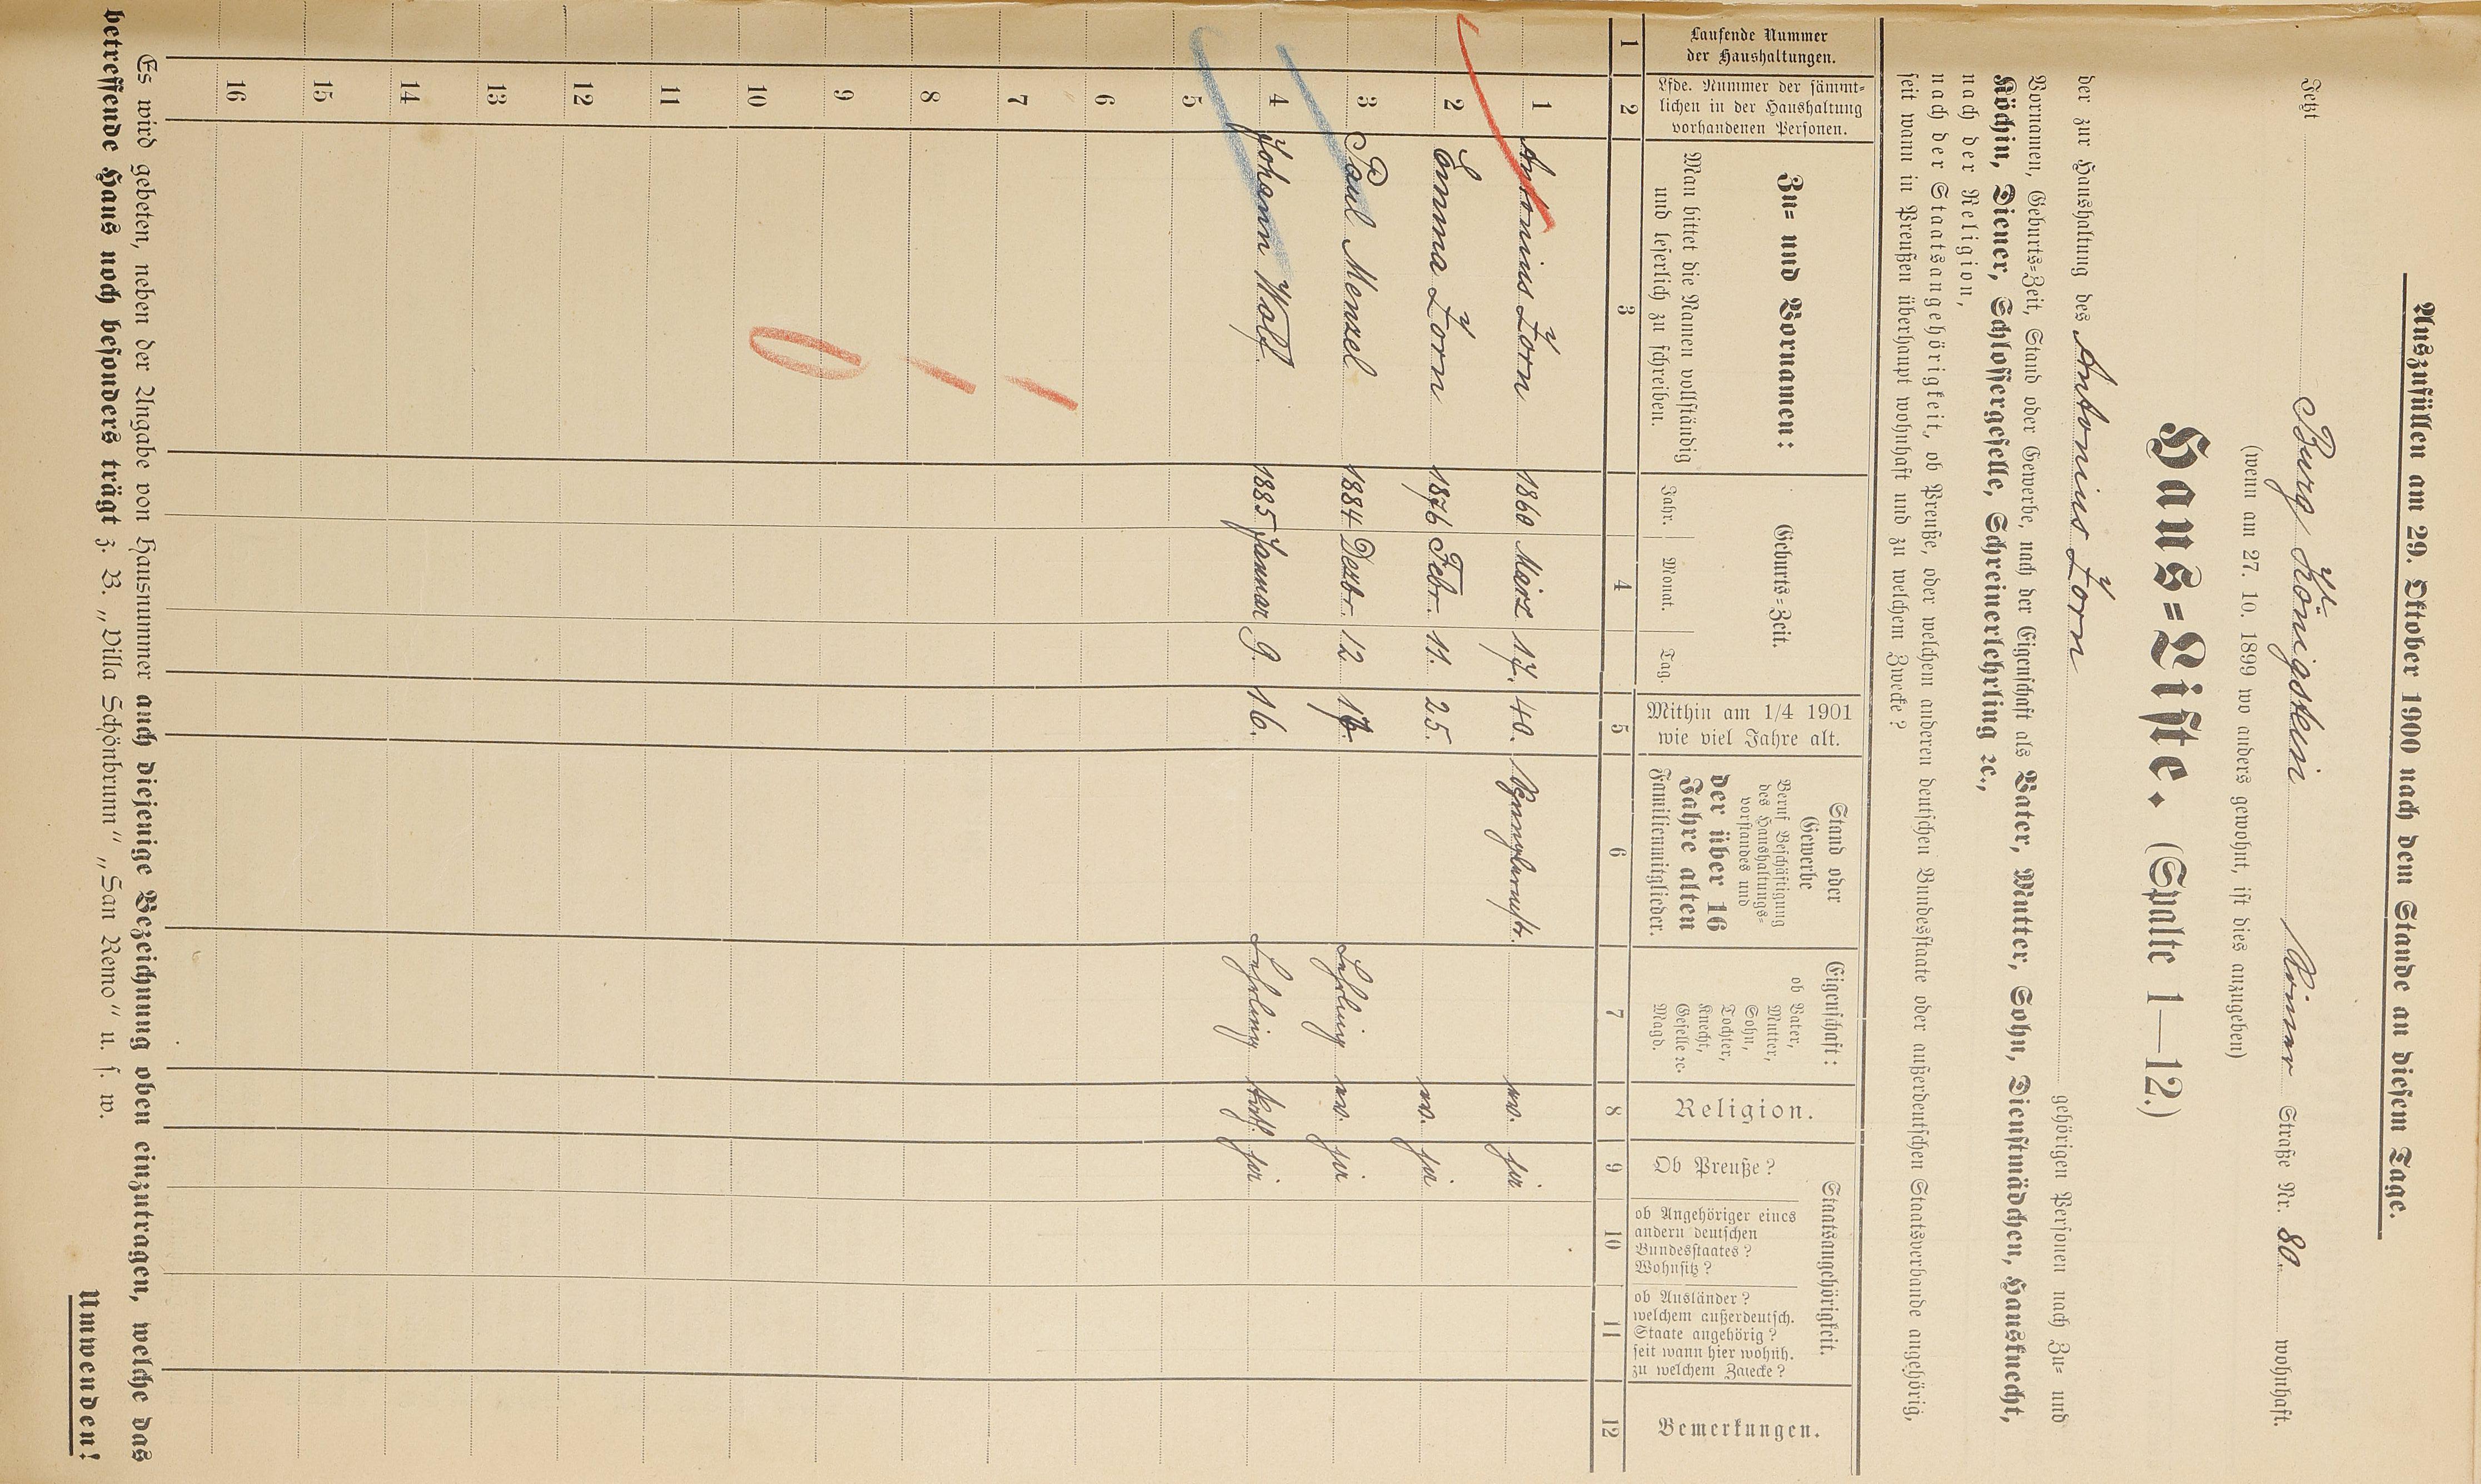 Auszufüllen am 29. Oktober 1900 nach dem Stande an diesem Tage.
Jetzt Burg Königstein Straße Nr. 80. wohnhaft.
(wenn am 27. 10. 1899 wo anders gewohnt, ist dies anzugeben)
Haus-Liste. (Spalte 1—12.)
der zur Haushaltung des Antonius Zorn gehörigen Personen nach Zu- und
Vornamen, Geburts-Zeit, Stand oder Gewerbe, nach der Eigenschaft als Vater, Mutter, Sohn, Dienstmädchen, Hausknecht,
Köchin, Diener, Schlossergeselle, Schreinerlehrling ꝛc.,
nach der Religion,
nach der Staatsangehörigkeit, ob Preuße, oder welchem anderen deutschen Bundesstaate oder außerdeutschen Staatsverbande angehörig,
seit wann in Preußen überhaupt wohnhaft und zu welchem Zwecke?
Laufende Nummer
der Haushaltungen.
Lfde. Nummer der sämmt-
lichen in der Haushaltung
vorhandenen Personen.
Zu- und Vornamen:
Man bittet die Namen vollständig
und leserlich zu schreiben.
Geburts-Zeit.
Jahr. Monat. Tag.
Mithin am 1/4 1901
wie viel Jahre alt.
Stand oder
Gewerbe
Beruf Beschäftigung
des Haushaltungs-
vorstandes und
der über 16
Jahre alten
Familienmitglieder.
Eigenschaft:
ob Vater,
Mutter,
Sohn,
Tochter,
Knecht,
Geselle ꝛc.
Magd.
Religion.
Staatsangehörigkeit.
Ob Preuße?
ob Angehöriger eines
andern deutschen
Bundesstaates?
Wohnsitz?
ob Ausländer?
welchem außerdeutsch.
Staate angehörig?
seit wann hier wohnh.
zu welchem Zwecke?
Bemerkungen.
1 2 3 4 5 6 7 8 9 10 11 12
1 Antonius Zorn 1860 März 17. 40. ev. ja
2 Emma Zorn 1876 Febr. 11. 25. ev. ja
3 Paul Menzel 1884 Dezbr. 12. Lehrling ev. ja
4 Johann Wolf. 1885 Januar 9. 16. Lehrling kath. ja
5
6
7
8
9
10
11
12
13
14
15
16
Es wird gebeten, neben der Angabe von Hausnummer auch diejenige Bezeichnung oben einzutragen, welche das
betreffende Haus noch besonders trägt z. B. „Villa Schönbrunn" „San Remo" u. s. w.
Umwenden!